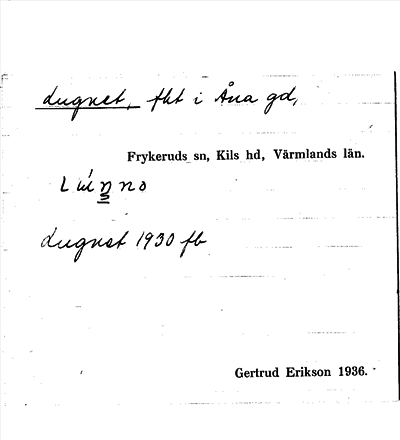 Lugnet, fht i Åna gd,
Frykeruds sn, Kils hd, Värmlands län.
Lugnet 1930 fb
Gertrud Erikson 1936.